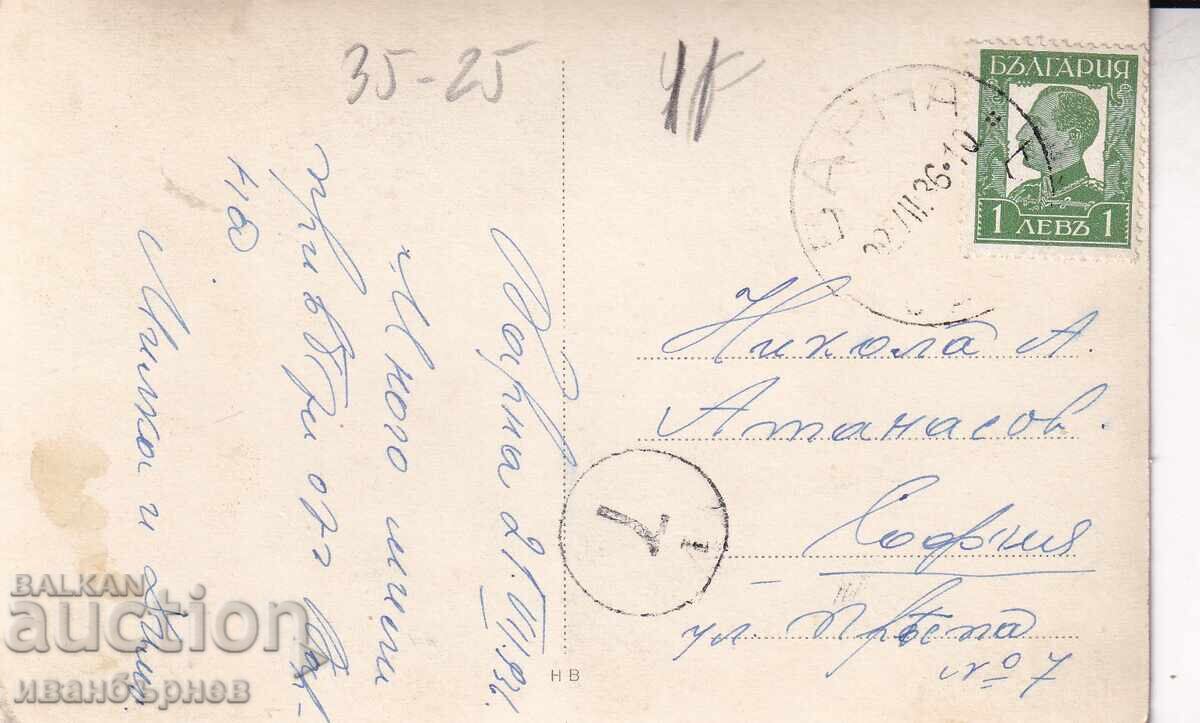 35-25
БЪЛГАРИЯ
1 ЛЕВЪ 1
ВАРНА
III.36.10
Варна 21.VII.936
"Много мили
привѣти отъ Вар-
на
Минка и
Никола А.
Атанасов.
София
ул. Прѣспа
№ 7
Т
НВ
BALKAN
auction
иванбърнев